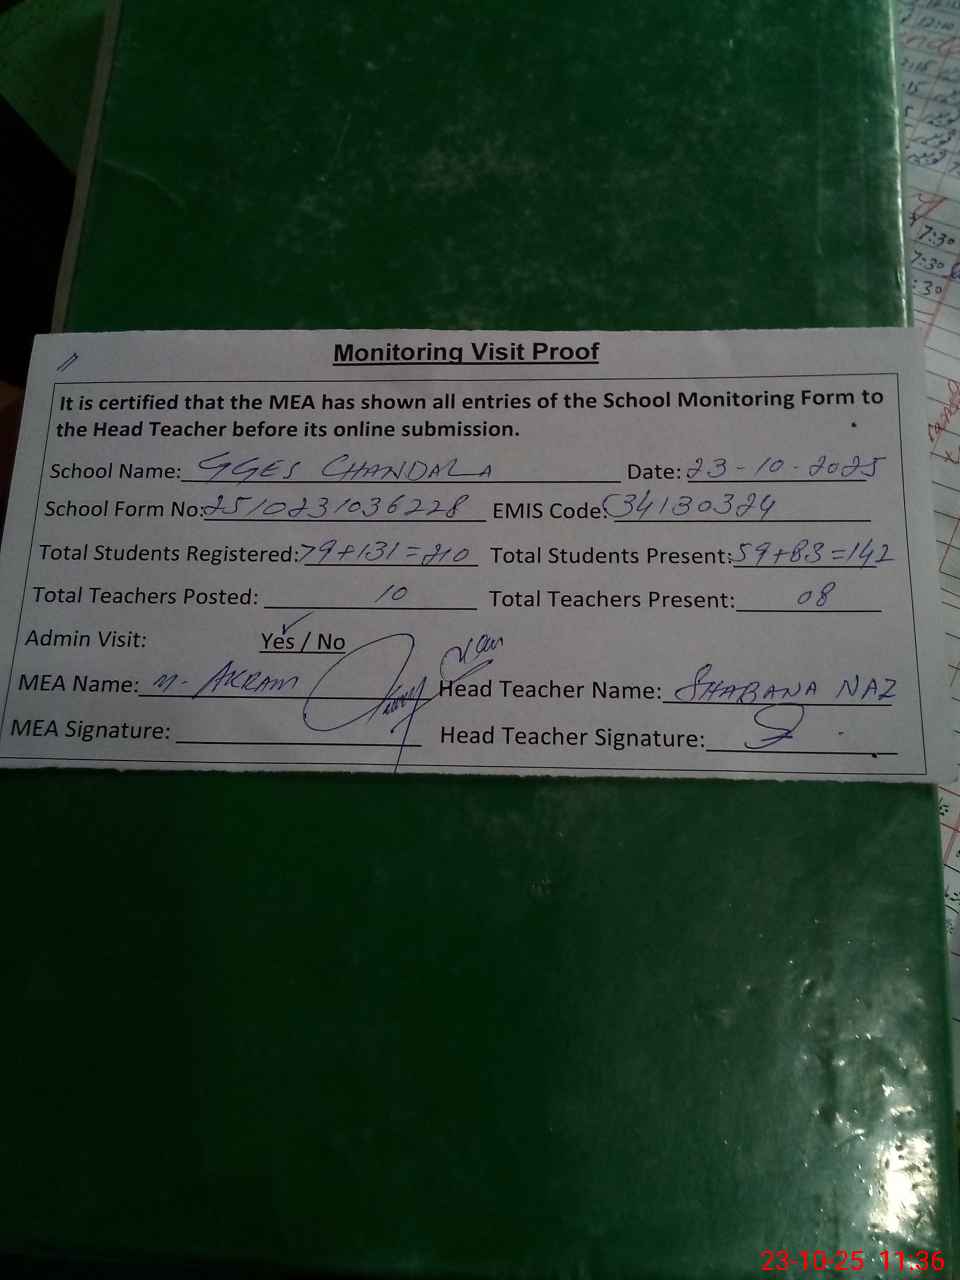 Monitoring Visit Proof
It is certified that the MEA has shown all entries of the School Monitoring Form to
the Head Teacher before its online submission.
School Name: GGES CHANDALA Date: 23-10-2025
School Form No: 2510231036228 EMIS Code: 34130324
Total Students Registered: 79+131=210 Total Students Present: 59+83=142
Total Teachers Posted: 10 Total Teachers Present: 08
Admin Visit: Yes / No
MEA Name: M. AKRAM Head Teacher Name: SHABANA NAZ
MEA Signature: Head Teacher Signature:
7:30
7:30
:30
23-10-25 11:36